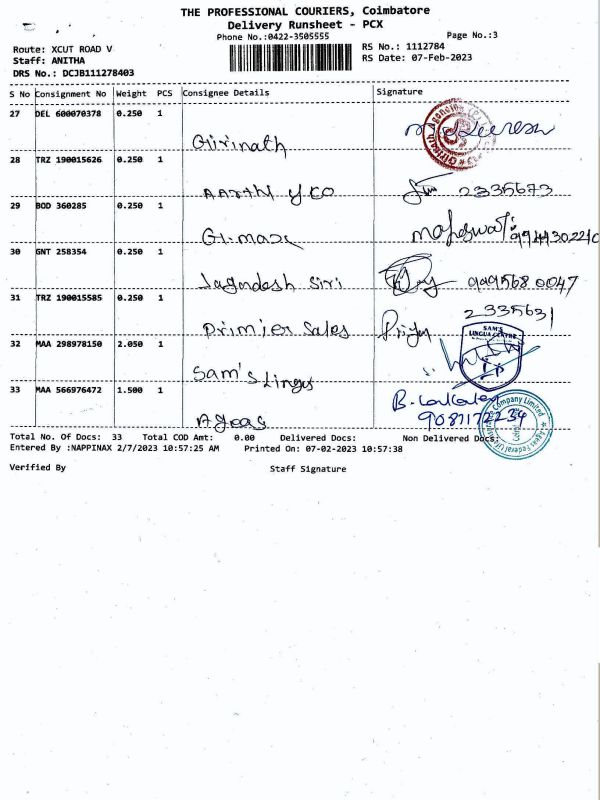 THE PROFESSIONAL COURIERS, Coimbatore
Delivery Runsheet - PCX
Phone No.:0422-3505555
Page No.:3
Route: XCUT ROAD V
RS No.: 1112784
Staff: ANITHA
RS Date: 07-Feb-2023
DRS No.: DCJB111278403
S No Consignment No Weight PCS Consignee Details Signature
27 DEL 600070378 0.250 1
Girinath
28 TRZ 190015626 0.250 1
AARTHY & CO 2335673
29 BOD 360285 0.250 1
G1.max
30 GNT 258354 0.250 1
Jagadesh Siri 9995680047
31 TRZ 190015585 0.250 1
2335631
Primier Sales Priya
32 MAA 298978150 2.050 1
SAM'S
LINGUA CENTRE
Sam's Lingus
33 MAA 566976472 1.500 1
Ageas 9087172234
Company Limited
Total No. Of Docs: 33 Total COD Amt: 0.00 Delivered Docs: Non Delivered Docs:
Entered By :NAPPINAX 2/7/2023 10:57:25 AM Printed On: 07-02-2023 10:57:38
Verified By Staff Signature